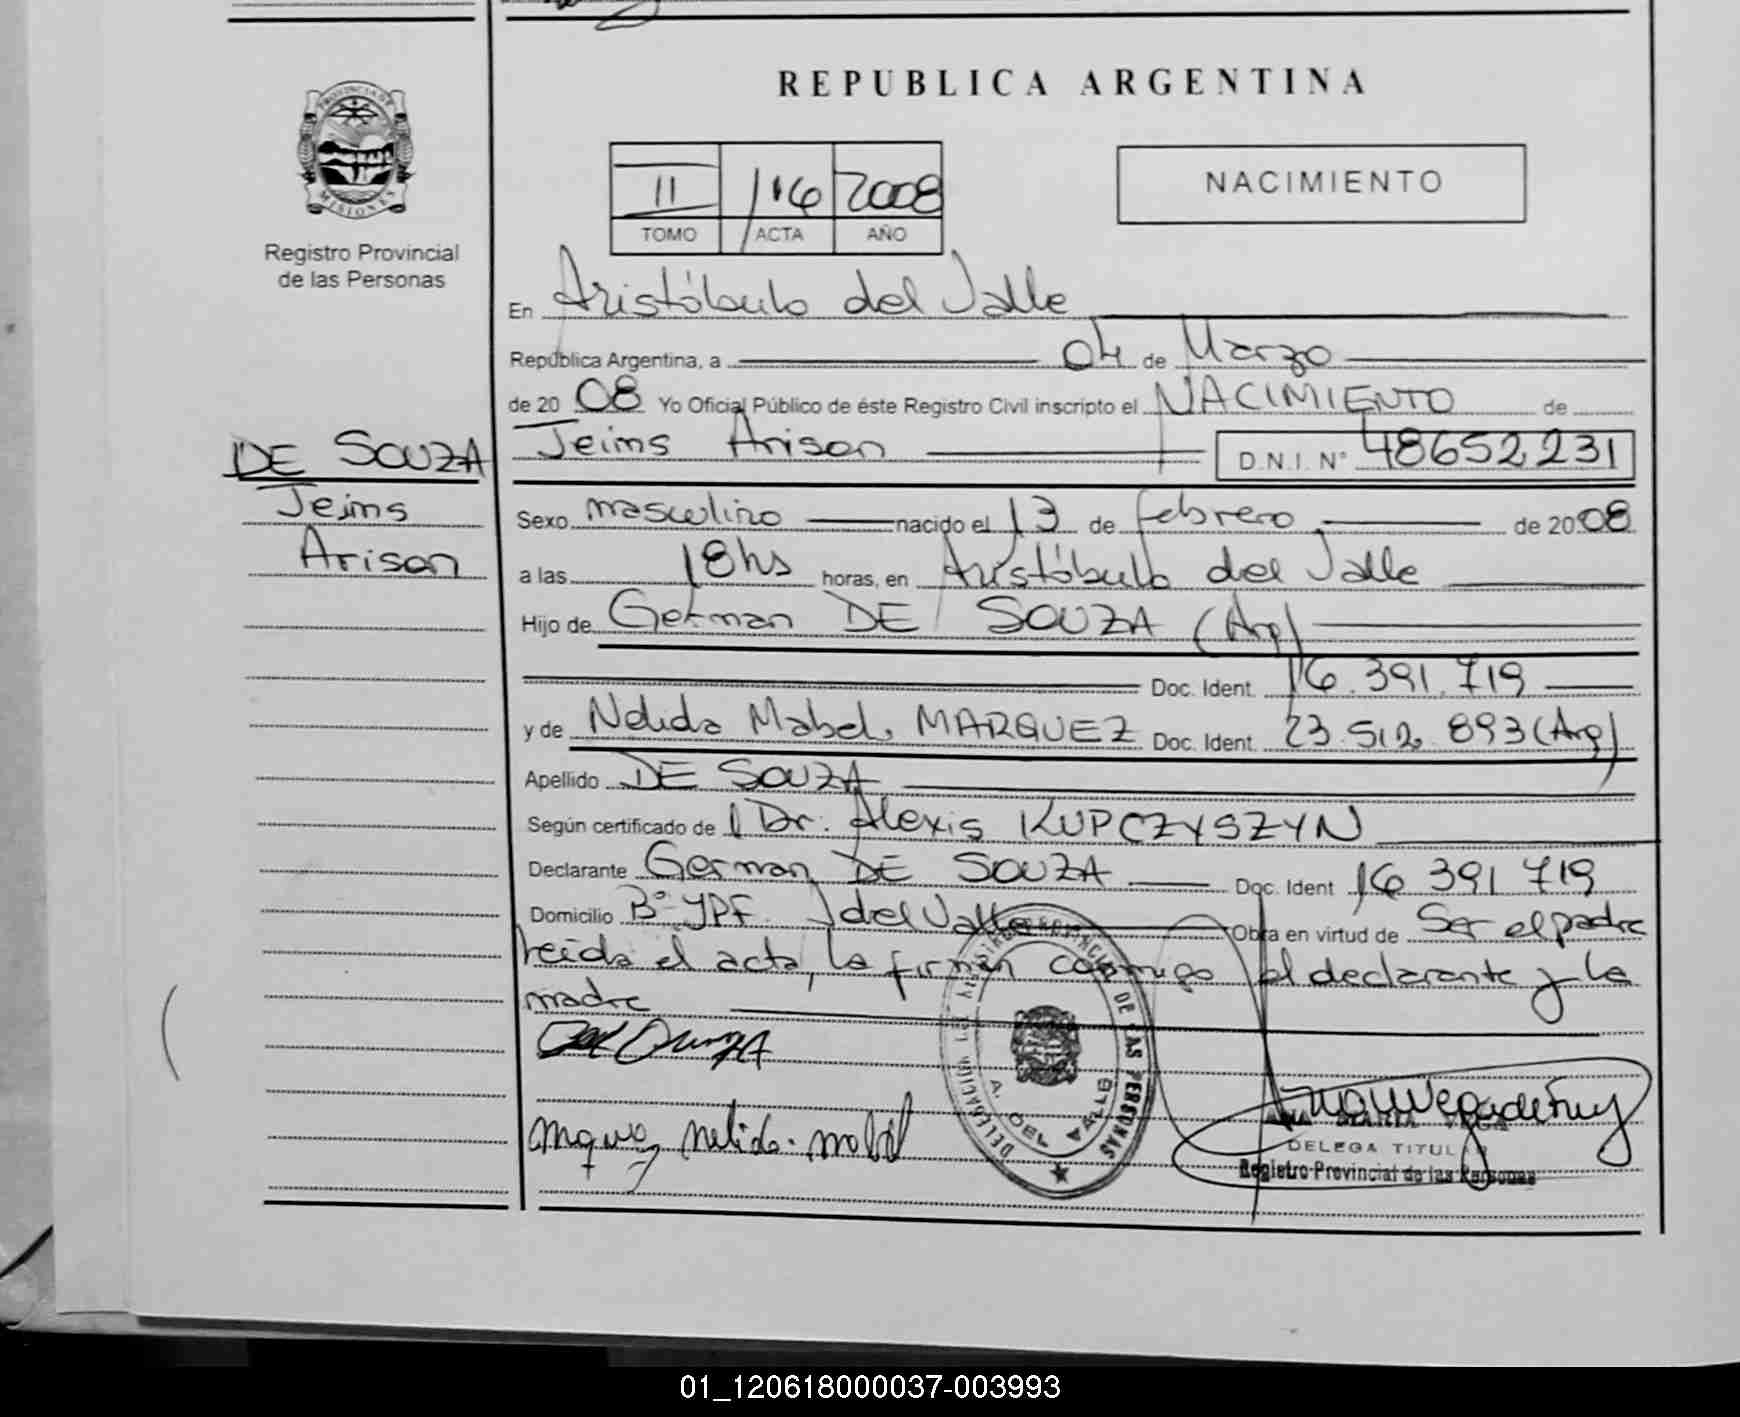 REPUBLICA ARGENTINA
PROVINCIA DE
MISIONES
Registro Provincial
de las Personas
II 116 2008
TOMO ACTA AÑO
NACIMIENTO
En Aristóbulo del Valle
República Argentina, a 04 de Marzo
de 20 08 Yo Oficial Público de éste Registro Civil inscripto el NACIMIENTO de
Jeims Arison D.N.I. N° 48652231
DE SOUZA
Jeims
Arison
Sexo masculino nacido el 13 de febrero de 20 08
a las 18hs horas, en Aristóbulo del Valle
Hijo de German DE SOUZA (Arg)
Doc. Ident. 16.391.719
y de Nelida Mabel MARQUEZ Doc. Ident. 23.512.893 (Arg)
Apellido DE SOUZA
Según certificado de Dr. Alexis KUPCZYSZYN
Declarante German DE SOUZA Doc. Ident 16 391 719
Domicilio B° YPF. A del Valle Obra en virtud de Ser el padre
leida el acta, la firman conmigo el declarante y la
madre
DELEGACION REGISTRO PROVINCIAL DE LAS PERSONAS
A. DEL VALLE
Marquez nelida mabel
VEGA
DELEGA TITUL
Registro Provincial de las Personas
01_120618000037-003993